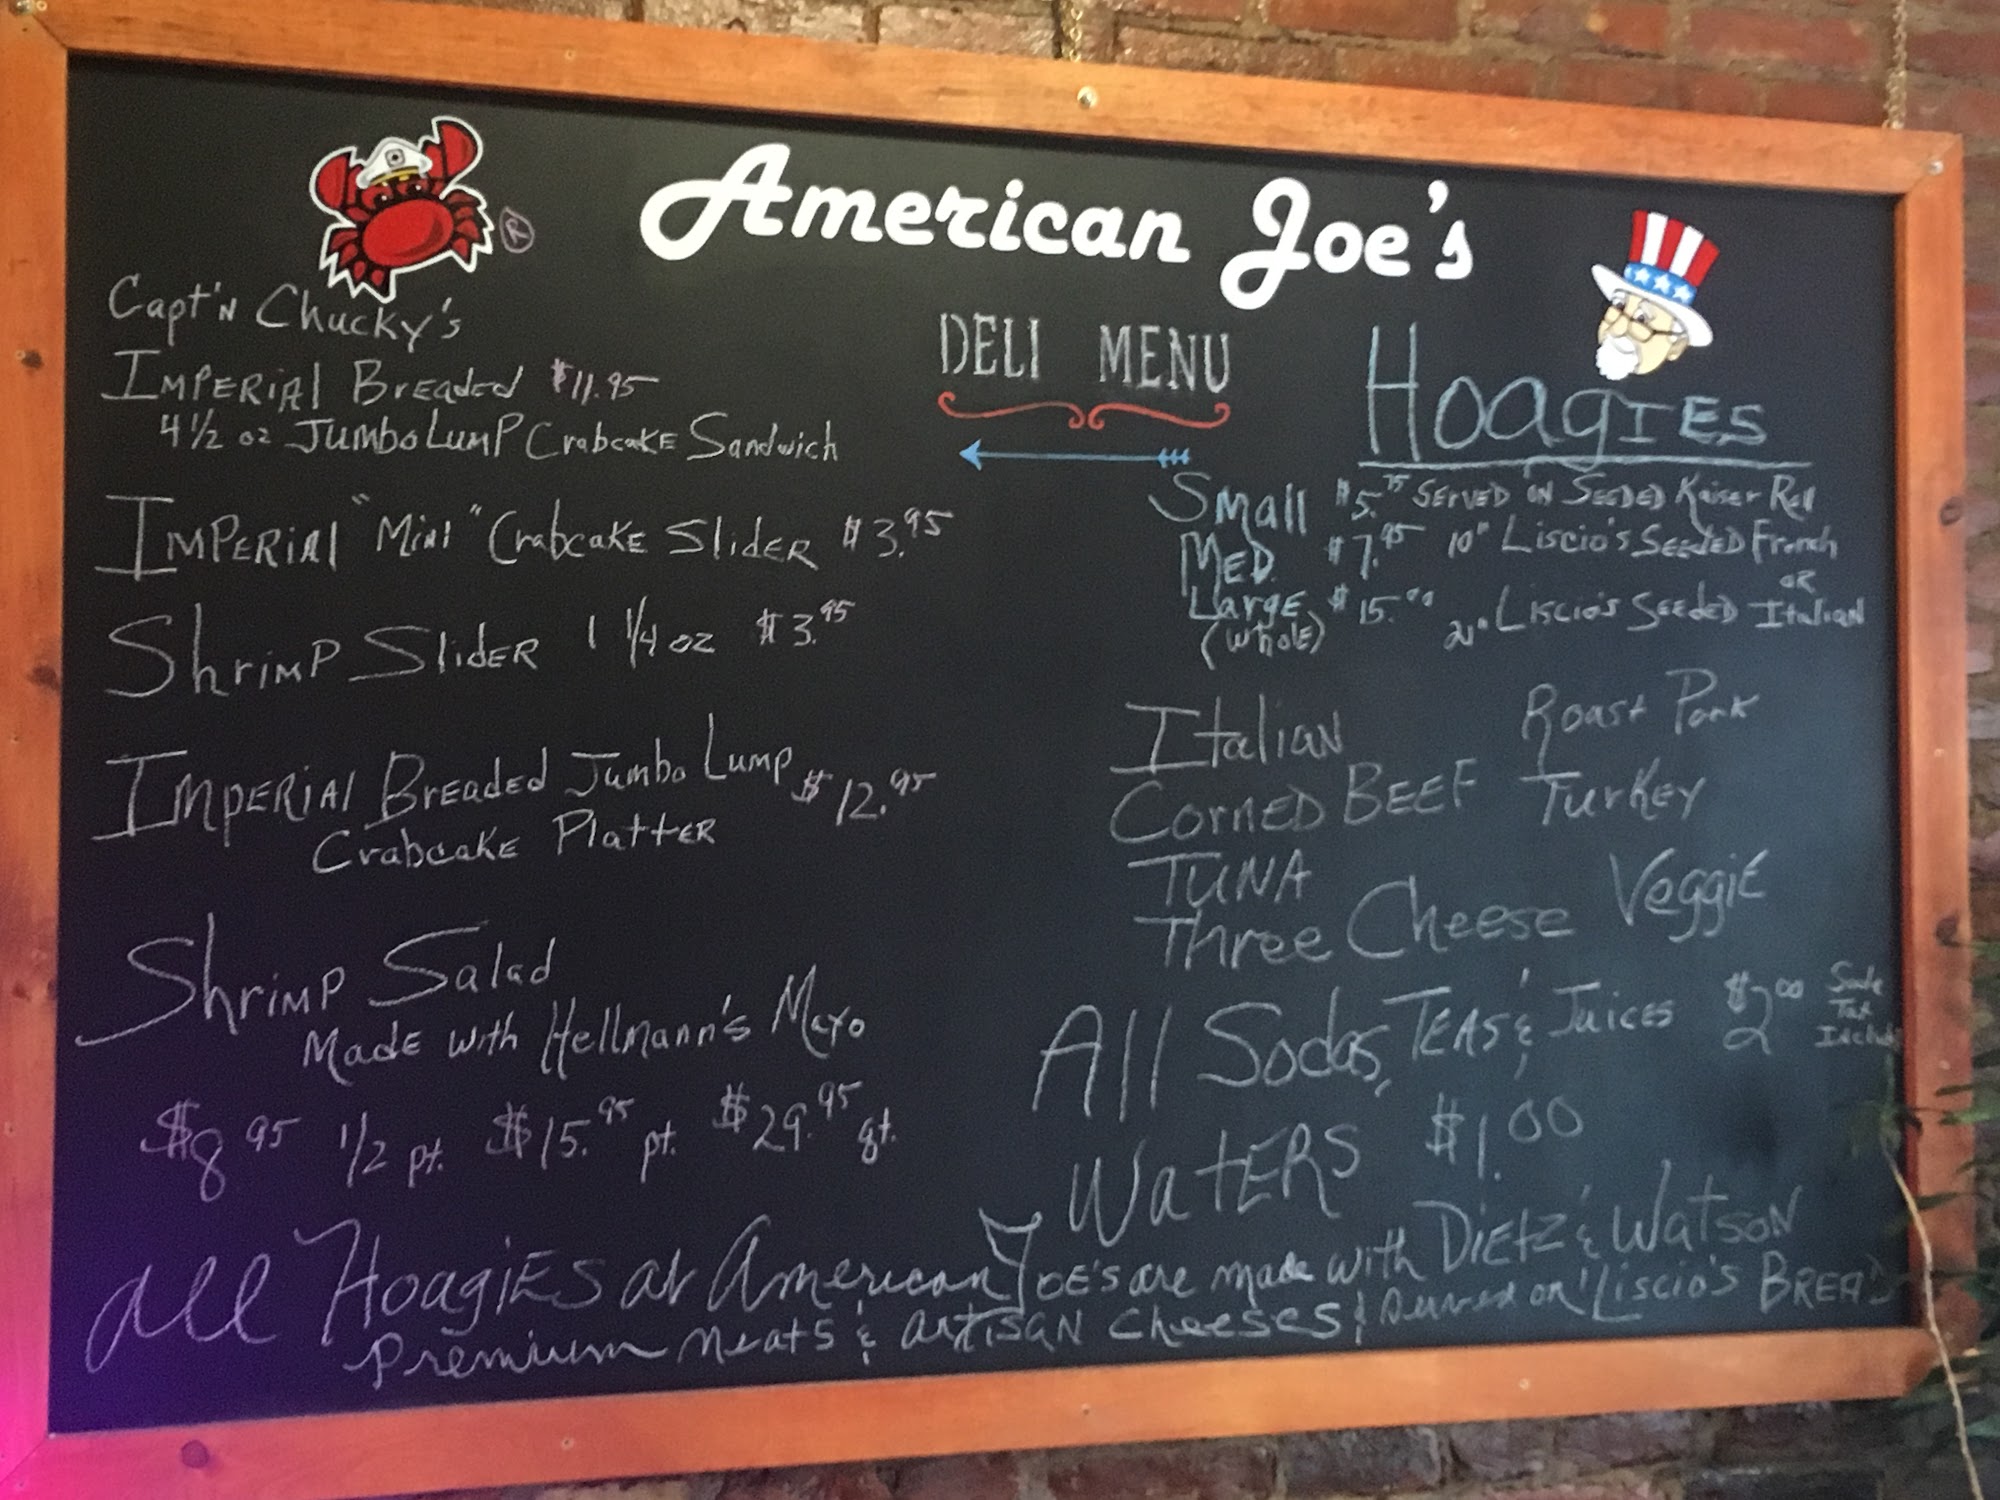 American Joe's
DELI MENU
®
Capt'n Chucky's
Imperial Breaded $11.95
4 1/2 oz Jumbo Lump Crabcake Sandwich
Imperial "Mini" Crabcake Slider $3.95
Shrimp Slider 1 1/4 oz $3.95
Imperial Breaded Jumbo Lump $12.95
Crabcake Platter
Shrimp Salad
Made with Hellmann's Mayo
$8 95 1/2 pt. $15.95 pt. $29.95 qt.
Hoagies
Small $5.75 Served on Seeded Kaiser Roll
Med. $7.95 10" Liscio's Seeded French
or
Large $15.00 Liscio's Seeded Italian
(Whole)
Italian Roast Pork
Corned Beef Turkey
Tuna
Three Cheese Veggie
All Sodas, Teas & Juices $2 00 Sale Tax
Waters $1.00
All Hoagies at American Joe's are made with Dietz & Watson
Premium meats & artisan cheeses & Served on Liscio's Bread